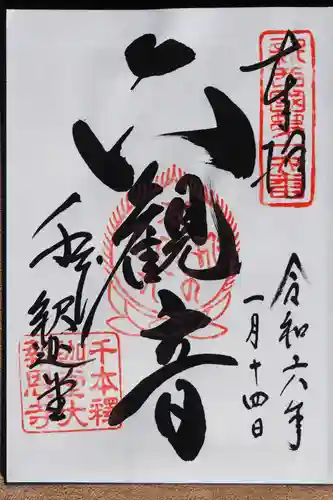 奉拝
令和六年
一月十四日
六観音
千本釈迦堂
千本釋
迦堂大
報恩寺